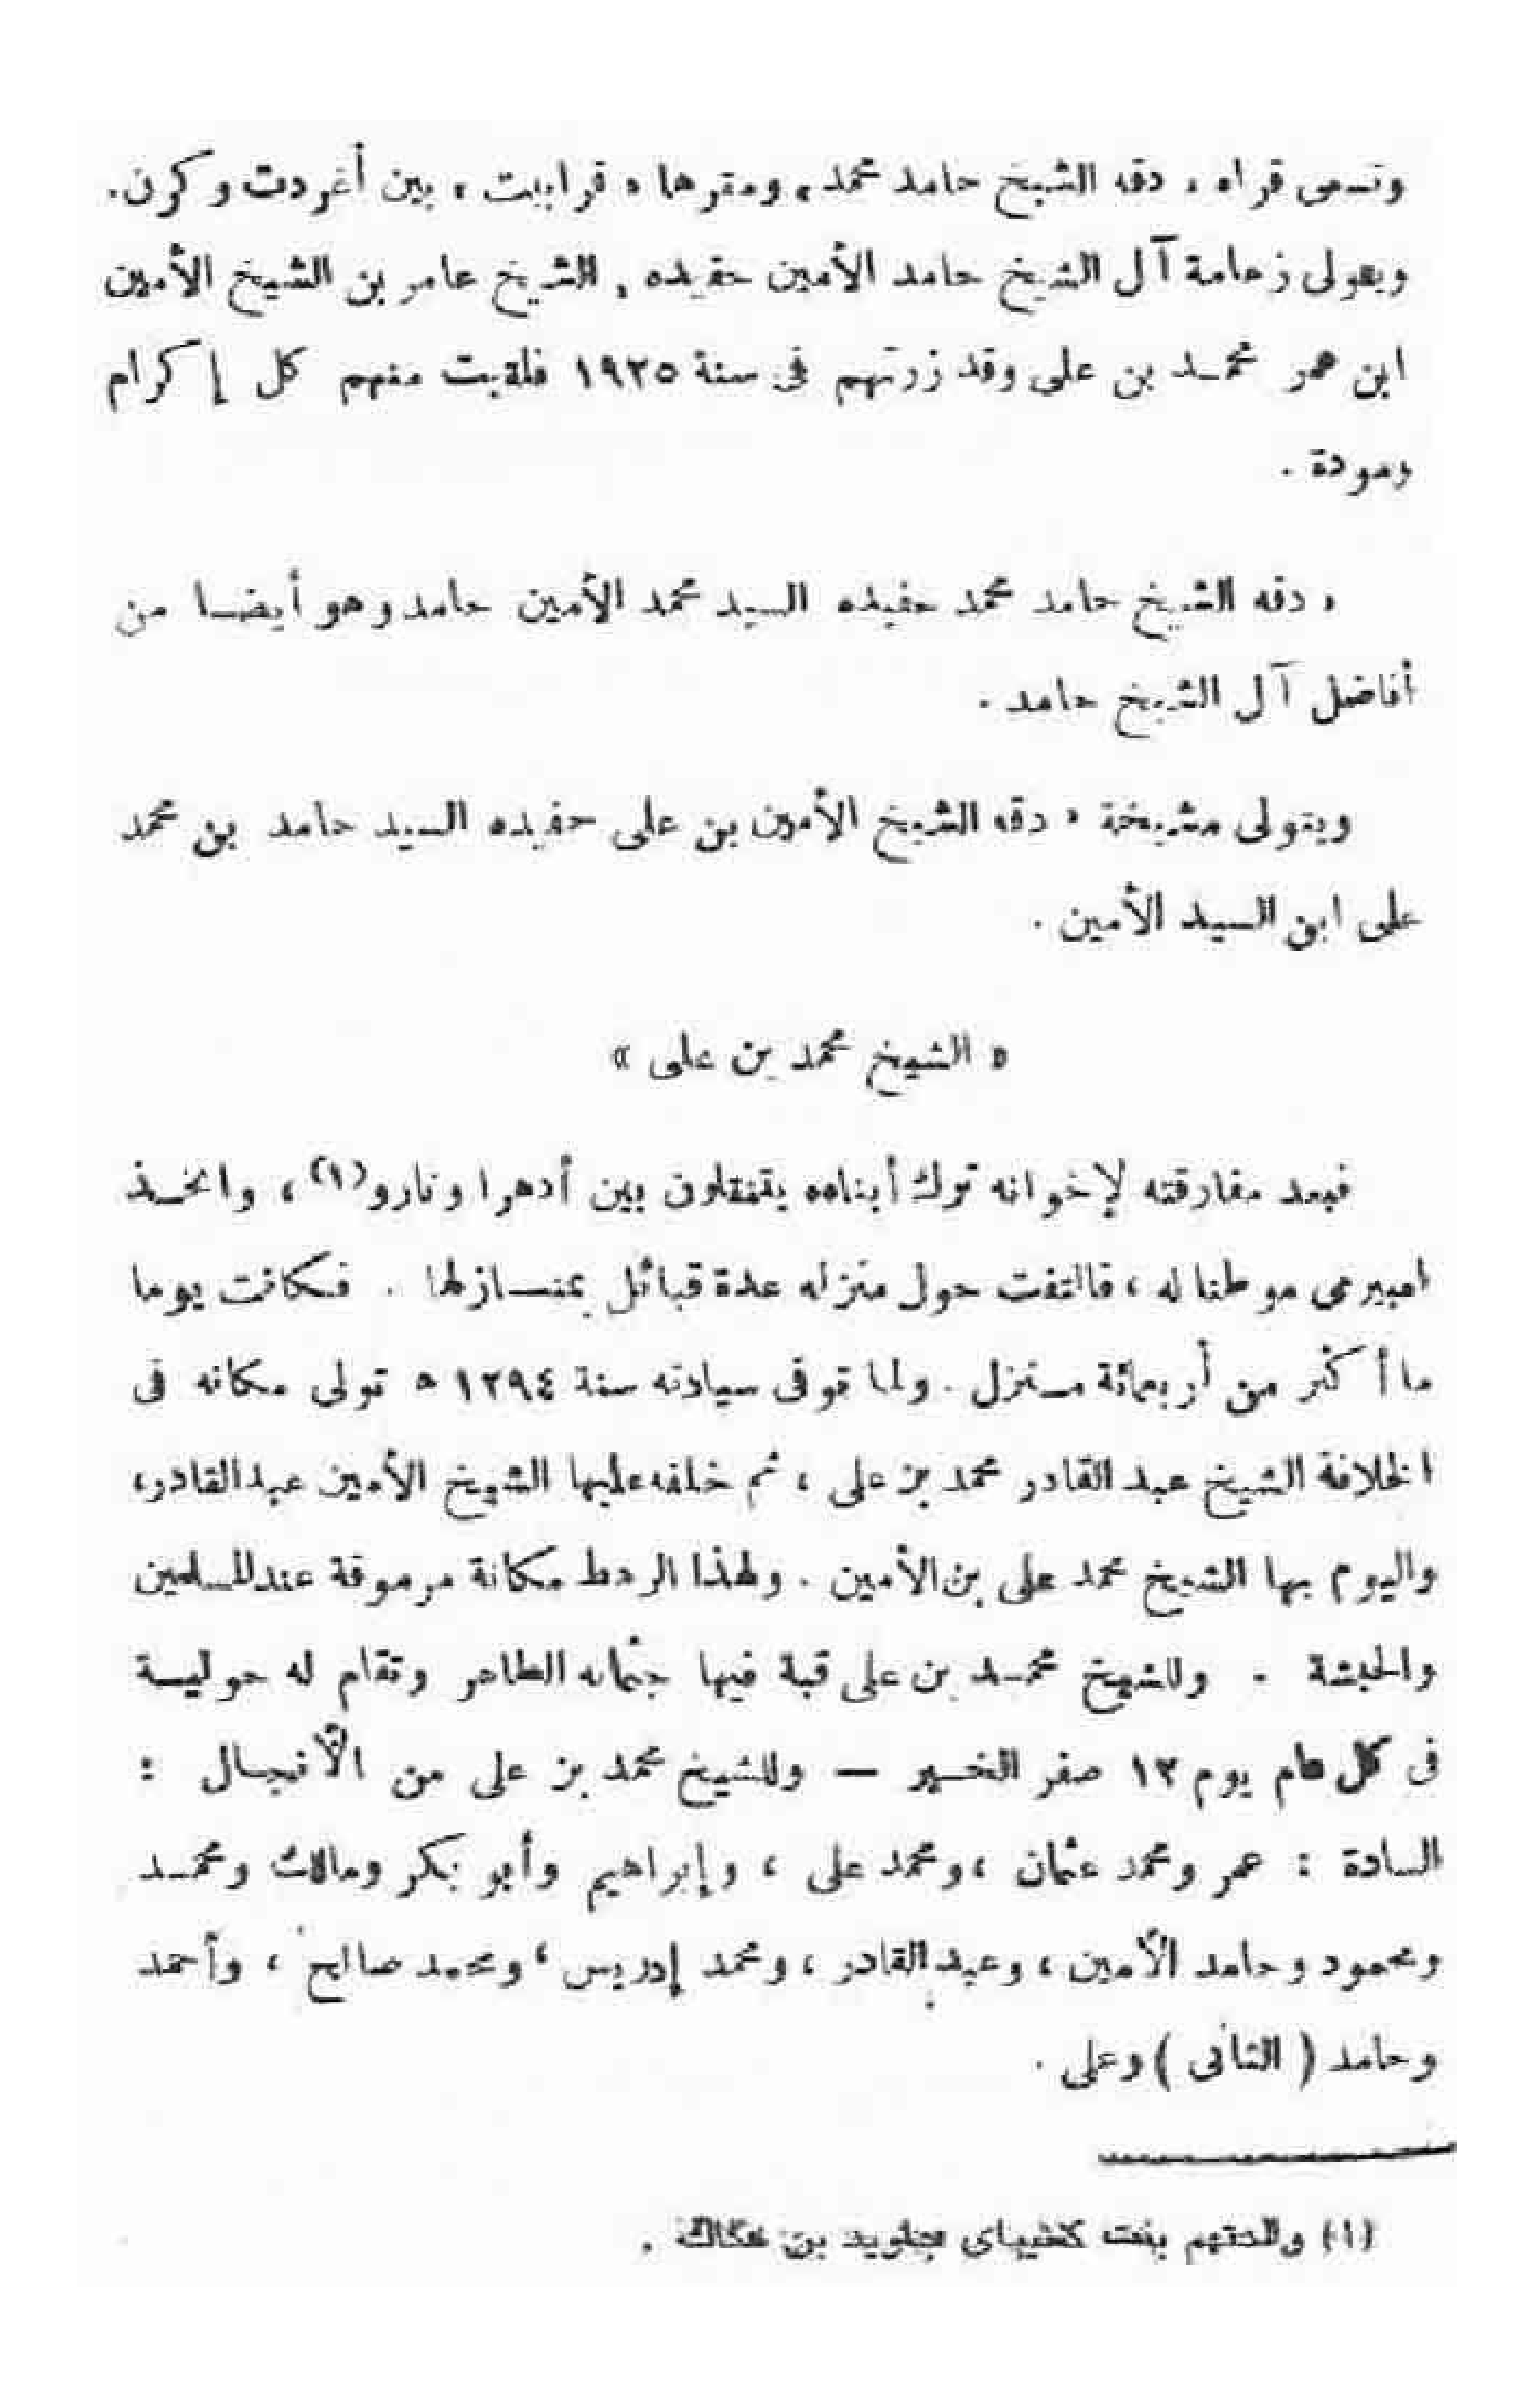 وتسمى قراه « دقه الشيخ حامد محمد » ومقرها « قراببت » بين أغردت وكرن.
ويتولى زعامة آل الشيخ حامد الأمين حفيده , الشيخ عامر بن الشيخ الأمين
ابن عمر محمد بن على وقد زرتهم فى سنة ١٩٣٥ فلقيت منهم كل إكرام
ومودة .
« دقه الشيخ حامد محمد حفيده السيد محمد الأمين حامد وهو أيضا من
أفاضل آل الشيخ حامد .
ويتولى مشيخة « دقه الشيخ الأمين بن على حفيده السيد حامد بن محمد
على ابن السيد الأمين .
« الشيخ محمد بن على »
فبعد مفارقته لإخوانه ترك أبناءه يتنقلون بين أدهرا ونارو(١) ، واتخذ
امبيرمى موطنا له ، فالتفت حول منزله عدة قبائل بمنازلها . فكانت يوما
ما أكثر من أربعمائة منزل . ولما توفى سيادته سنة ١٢٩٤ ه تولى مكانه فى
الخلافة الشيخ عبد القادر محمد بن على ، ثم خلفه عليها الشيخ الأمين عبد القادر،
واليوم بها الشيخ محمد على بن الأمين . ولهذا الرهط مكانة مرموقة عند المسلمين
والحبشة . وللشيخ محمد بن على قبة فيها جثمانه الطاهر وتقام له حولية
فى كل عام يوم ١٣ صفر الخير — وللشيخ محمد بن على من الأنجال :
السادة : عمر ومحمد عثمان ، ومحمد على ، وإبراهيم وأبو بكر ومالك ومحمد
ومحمود وحامد الأمين ، وعبد القادر ، ومحمد إدريس ، ومحمد صالح ، وأحمد
وحامد ( الثانى ) وعلى .
(١) والدتهم بنت كنتيباى جاويد بن عكاك .